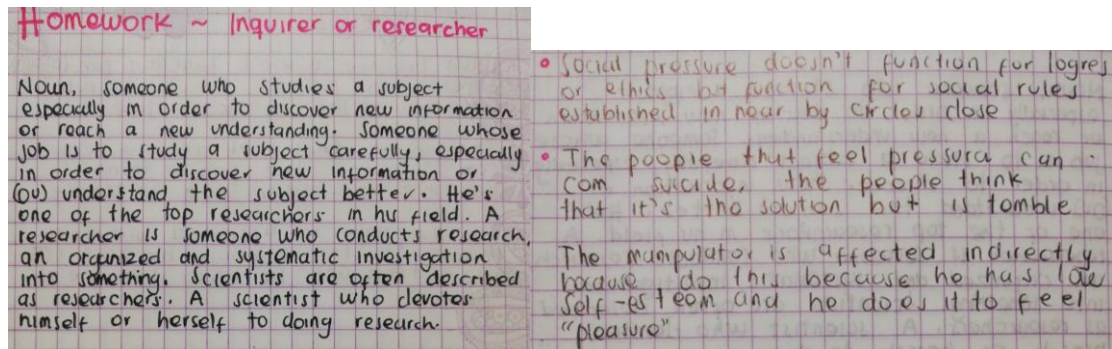 Homework ~ Inquirer or researcher
Noun, someone who studies a subject
especially in order to discover new information
or reach a new understanding. Someone whose
job is to study a subject carefully, especially
in order to discover new information or
(ou) understand the subject better. He's
one of the top researchers in his field. A
researcher is someone who conducts research,
an organized and systematic investigation
into something. Scientists are often described
as researchers. A scientist who devotes
himself or herself to doing research.
• Social pressure doesn't function for logres
or ethics but function for social rules
established in near by circles close
• The people that feel pressura can
com suicide, the people think
that it's the solution but is
The manipulator is affected indirectly
because do this because he has low
self-esteem and he does it to feel
"pleasure"